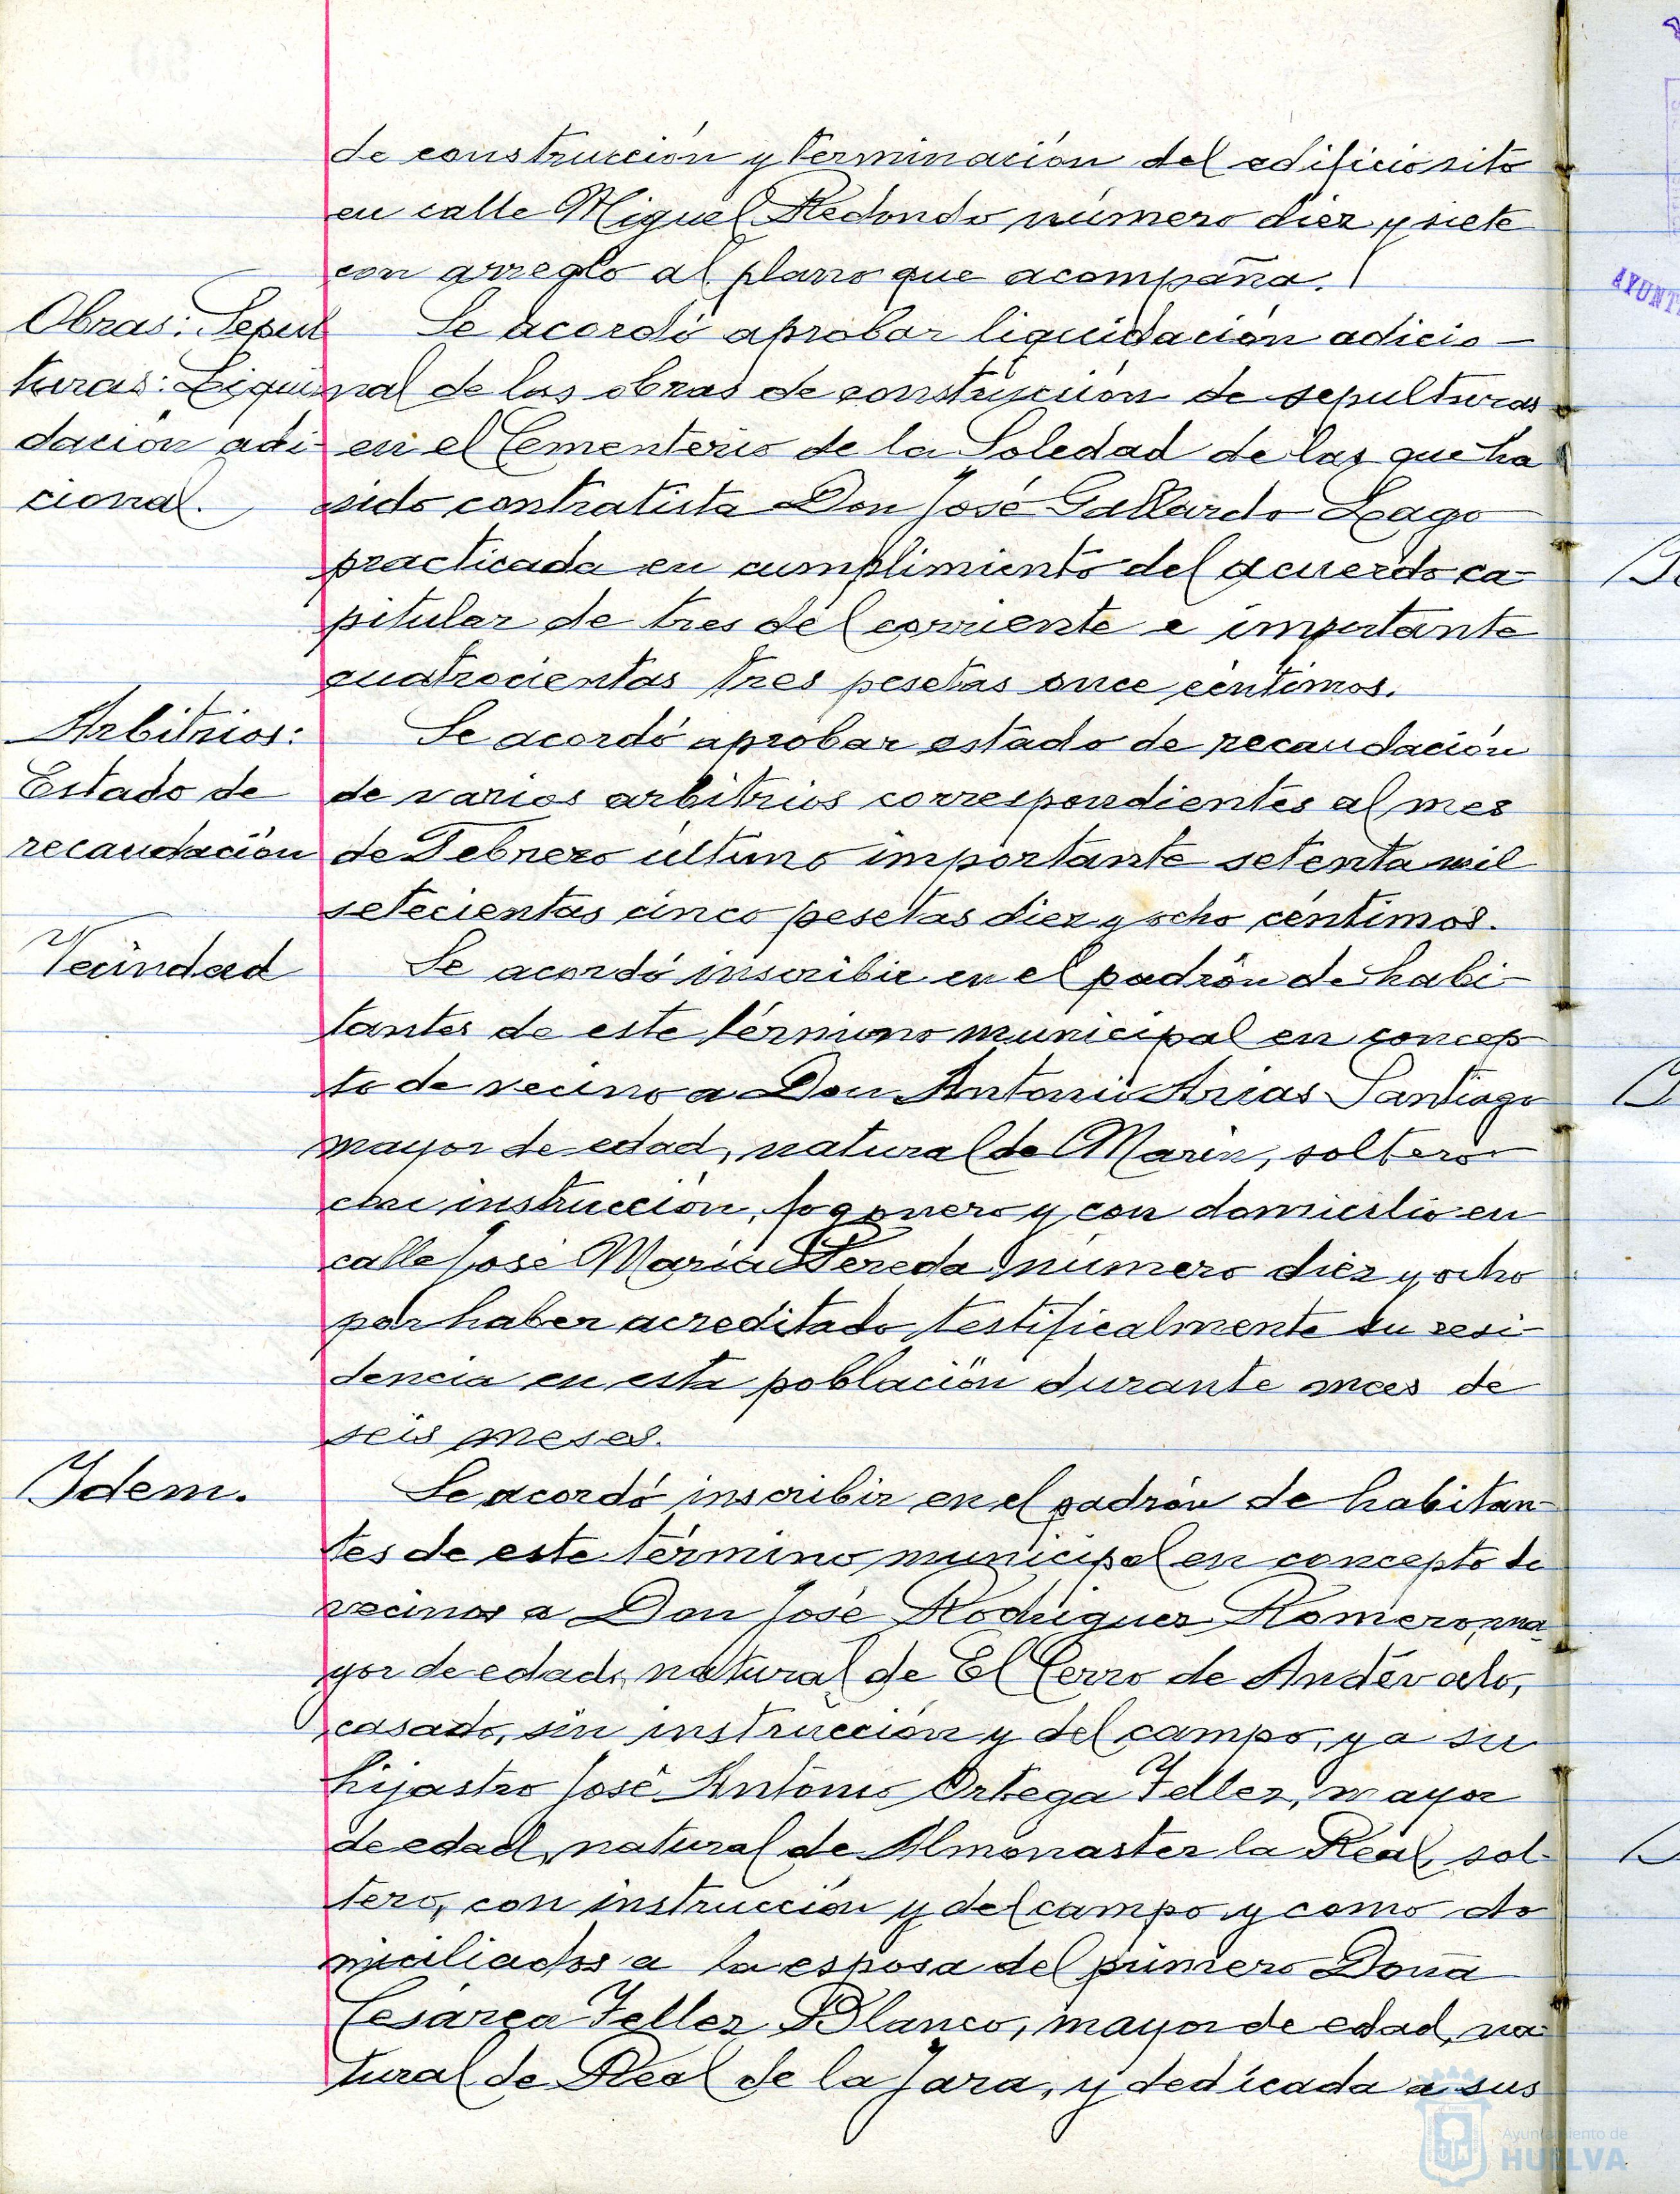 de construcción y terminación del edificio sito
en calle Miguel Redondo número diez y siete
con arreglo al plano que acompaña.
Obras: Sepul
turas: Liqui
dación adi
cional.
Se acordó aprobar liquidación adicio-
nal de las obras de construcción de sepulturas
en el Cementerio de la Soledad de las que ha
sido contratista Don José Gallardo Lago
practicada en cumplimiento del acuerdo ca-
pitular de tres del corriente e importante
cuatrocientas tres pesetas once céntimos.
Arbitrios:
Estado de
recaudación
Se acordó aprobar estado de recaudación
de varios arbitrios correspondientes al mes
de Febrero último importante setenta mil
setecientas cinco pesetas diez y ocho céntimos.
Vecindad
Se acordó inscribir en el padrón de habi-
tantes de este término municipal en concep
to de vecino a Don Antonio Arias Santiago
mayor de edad, natural de Marín, soltero
con instrucción, fogonero y con domicilio en
calle José María Pereda número diez y ocho
por haber acreditado testificalmente su resi-
dencia en esta población durante mas de
seis meses.
Idem.
Se acordó inscribir en el padrón de habitan-
tes de este término municipal en concepto de
vecinos a Don José Rodríguez Romero, ma-
yor de edad, natural de El Cerro de Andévalo,
casado, sin instrucción y del campo, y a su
hijastro José Antonio Ortega Tellez, mayor
de edad, natural de Almonaster la Real, sol-
tero, con instrucción y del campo y como do
miciliados a la esposa del primero Doña
Cesárea Tellez Blanco, mayor de edad, na-
tural de Real de la Jara, y dedicada a sus
AYUNT
Ayuntamiento de
HUELVA